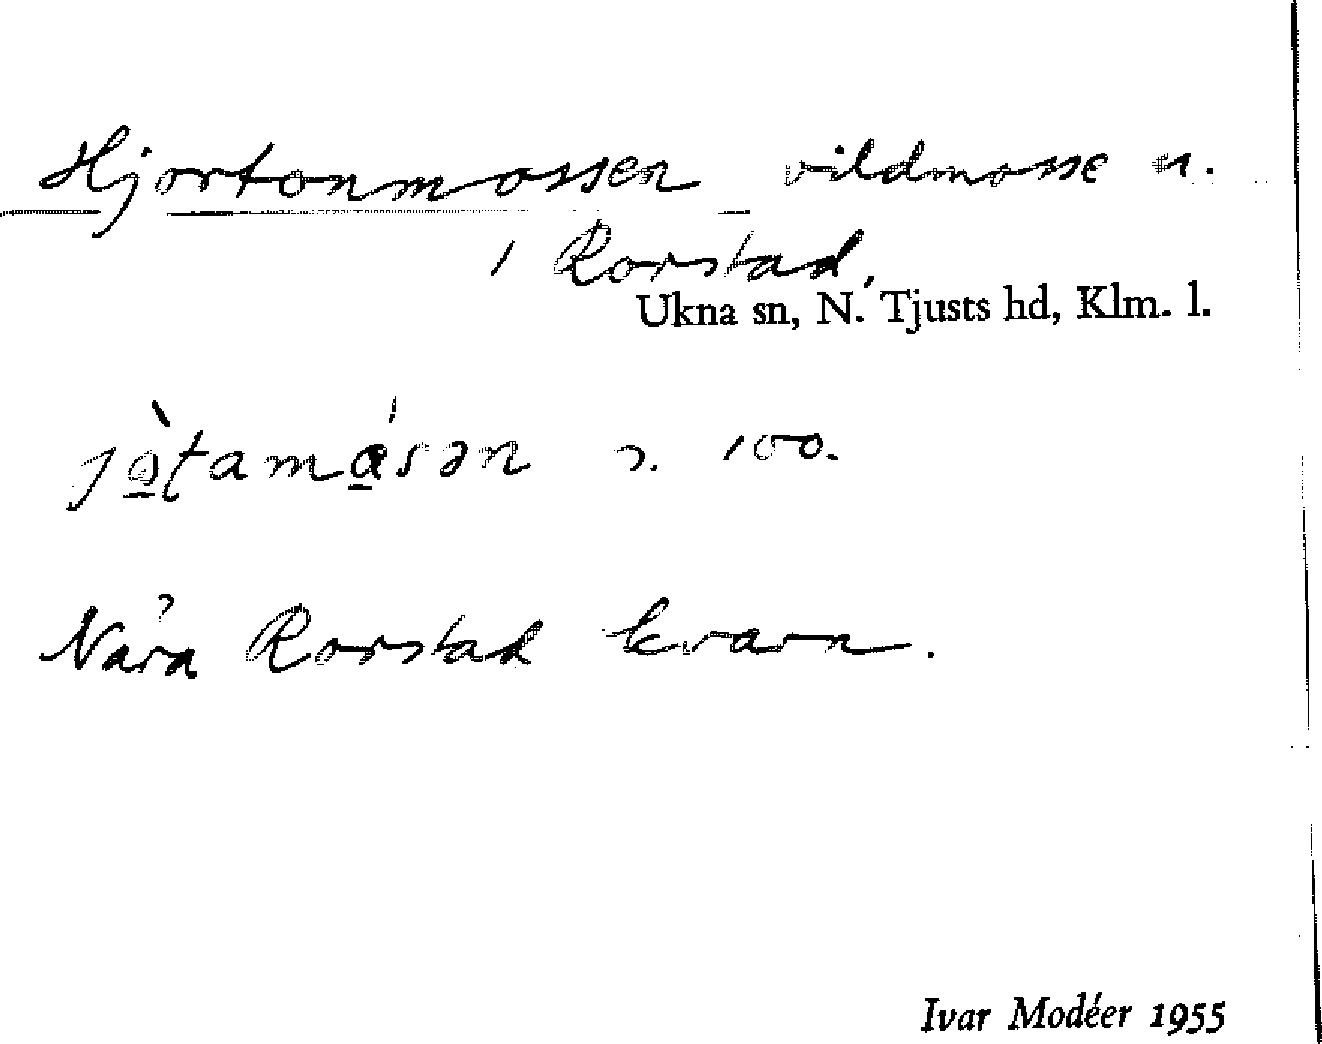 Hjortonmossen vildmosse n.
i Rorstad,
Ukna sn, N. Tjusts hd, Klm. l.
jò̱ʈamɑ̱́sən 100.
Nära Rorstad kvarn.
Ivar Modéer 1955